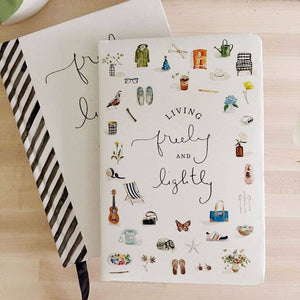 freely
LIVING
freely
AND
lightly